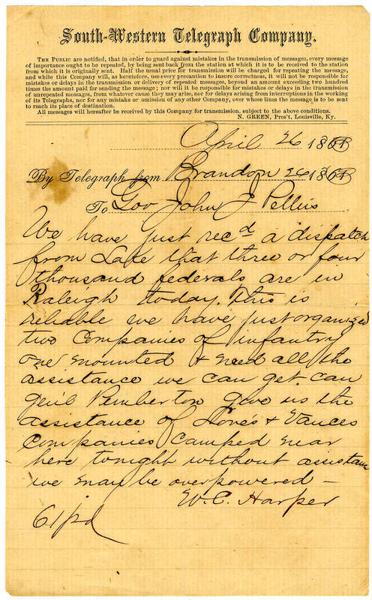 South-Western Telegraph Company.
THE PUBLIC are notified, that in order to guard against mistakes in the transmission of messages, every message
of importance ought to be repeated, by being sent back from the station at which it is to be received to the station
from which it is originally sent. Half the usual price for transmission will be charged for repeating the message,
and while this Company will, as heretofore, use every precaution to insure correctness, it will not be responsible for
mistakes or delays in the transmission or delivery of repeated messages, beyond an amount exceeding two hundred
times the amount paid for sending the message; nor will it be responsible for mistakes or delays in the transmission
of unrepeated messages, from whatever cause they may arise, nor for delays arising from interruptions in the working
of its Telegraphs, nor for any mistake or omission of any other Company, over whose lines the message is to be sent
to reach its place of destination.
All messages will hereafter be received by this Company for transmission, subject to the above conditions.
N. GREEN, Pres't, Louisville, Ky.
April 26 186
By Telegraph from Brandon 26 186
To Gov John J Pettus
We have just recd a dispatch
from Lake that three or four
thousand federals are in
Raleigh today. This is
reliable we have just organized
two Companies of infantry
one mounted & need all the
assistance we can get. can
Genl Pemberton give us the
assistance of Loves & Vances
Companies Camped near
here tonight without assistance
we may be overpowered —
W. C. Harper
61 pd